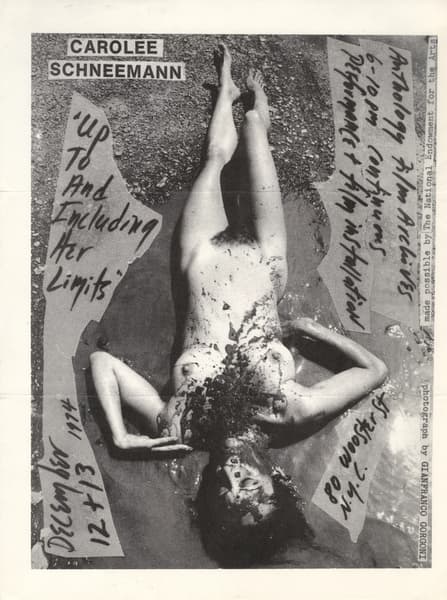 CAROLEE
SCHNEEMANN
"Up
To
And
Including
Her
Limits"
Anthology Film Archives
6-10 pm continuous
Performance + film installation
made possible by The National Endowment for the Arts
DECEMBER
12 + 13 1974
80 Wooster St
N.Y.C.
photograph by GIANFRANCO GORGONI